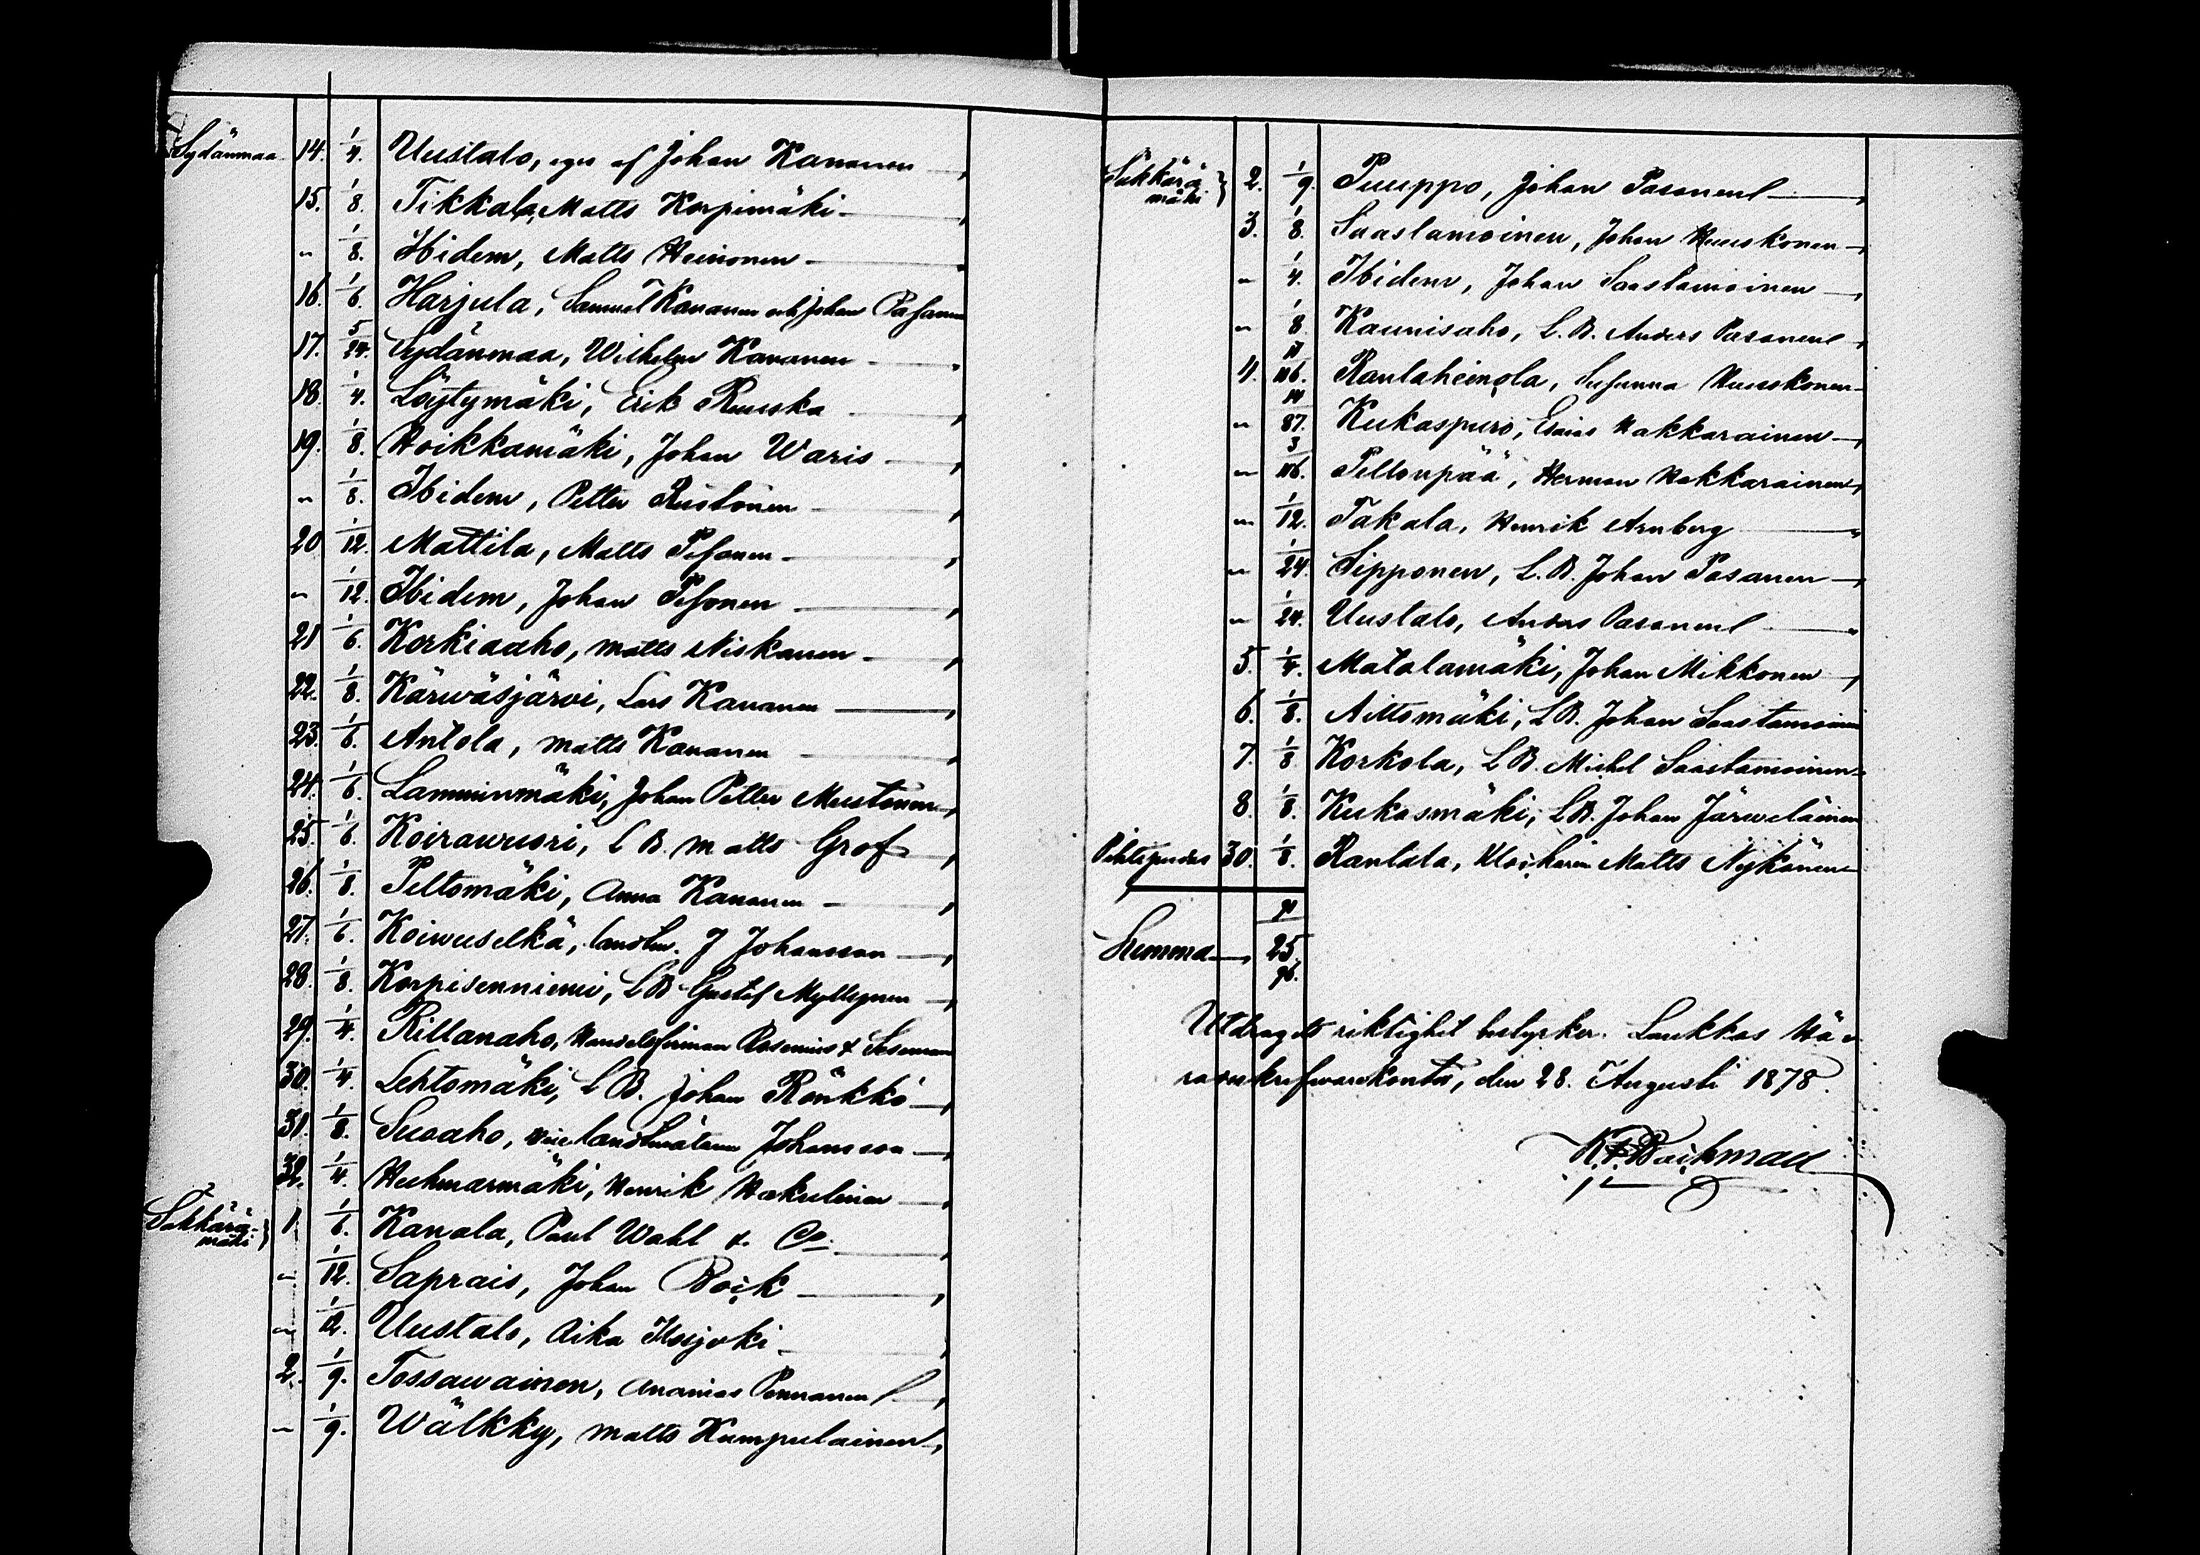 Sydänmaa 14. 1/4. Uustalo, eges af Johan Kananen
15. 1/8. Tikkala, Matts Korpimäki
„ 1/8. Ibidem, Matts Heinonen
16. 1/6. Harjula, Samuel Kananen och Johan Pasanen
17. 5/24. Sydänmaa, Wilhelm Kananen
18. 1/4. Löytymäki, Erik Ruuska
19. 1/8. Hoikkamäki, Johan Waris
„ 1/8. Ibidem, Petter Ruotonen
20 1/12. Mattila, Matts Pesonen
„ 1/12. Ibidem, Johan Pesonen
21 1/6. Korkiaaho, Matts Niskanen
22. 1/8. Kärwäsjärvi, Lars Kananen
23. 1/6. Antola, Matts Kananen
24. 1/6. Lamminmäki, Johan Petter Mustonen
25. 1/6. Koirawuori, L B. Matts Grof
26. 1/8. Peltomäki, Anna Kananen
27. 1/6. Koiwuselkä, landtm. J Johansson
28. 1/8. Korpisenniemi, L B Gustaf Myllynen
29. 1/4. Rillanaho, Handelsfirman Rosenius & Seseman
30. 1/4. Lehtomäki, L B. Johan Rönkkö
31. 1/8. Suoaho, Vice landtmätaren Johansson
32. 1/4. Huhmarmäki, Henrik Hakulinen
Säkkärämäki 1. 1/6. Kanala, Paul Wahl & Co
„ 1/12. Saprais, Johan Boik
„ 1/12. Uustalo, Aika Ilsijoki
2. 1/9. Tossawainen, Ananias Pennanen
„ 1/9. Wälkky, Matts Kumpulainen
Säkkärämäki 2. 1/9. Puuppo, Johan Pasanen
3. 1/8. Saastamoinen, Johan Huuskonen
„ 1/4. Ibidem, Johan Saastamoinen
„ 1/8. Kaunisaho, L. B. Anders Pasanen
4. Rautaheinola, Susanna Huuskonen
„ Kukaspuro, Esaias Hakkarainen
„ Peltonpää, Herman Hakkarainen
„ 1/12. Takala, Henrik Arnberg
„ 1/24. Sipponen, L. B. Johan Pasanen
„ 1/24. Uustalo, Anders Pasanen
5. 1/4. Matalamäki, Johan Mikkonen
6. 1/8. Aittomäki, L B. Johan Saastamoinen
7. 1/8 Korkola, L B. Michel Saastamoinen
8. 1/8. Kukasmäki, L B. Johan Järweläinen
Pihtipudas 30. 1/8. Rantala, Klockaren Matts Nykänen
Summa 25
Utdragets riktighet bestyrker. Laukkas Hä-
radsskrifvarekontor, den 28. Augusti 1878.